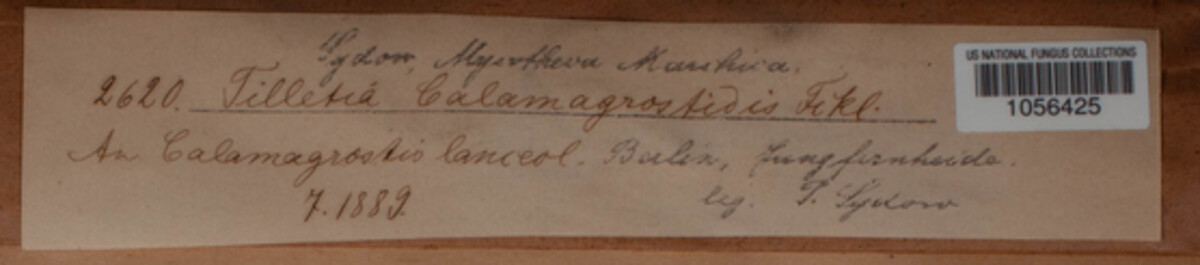 Sydow, Mycotheca Marchica.
2620. Tilletia Calamagrostidis Fckl.
An Calamagrostis lanceol. Berlin, Jungfernheide.
7. 1889. leg. P. Sydow
US NATIONAL FUNGUS COLLECTIONS
1056425